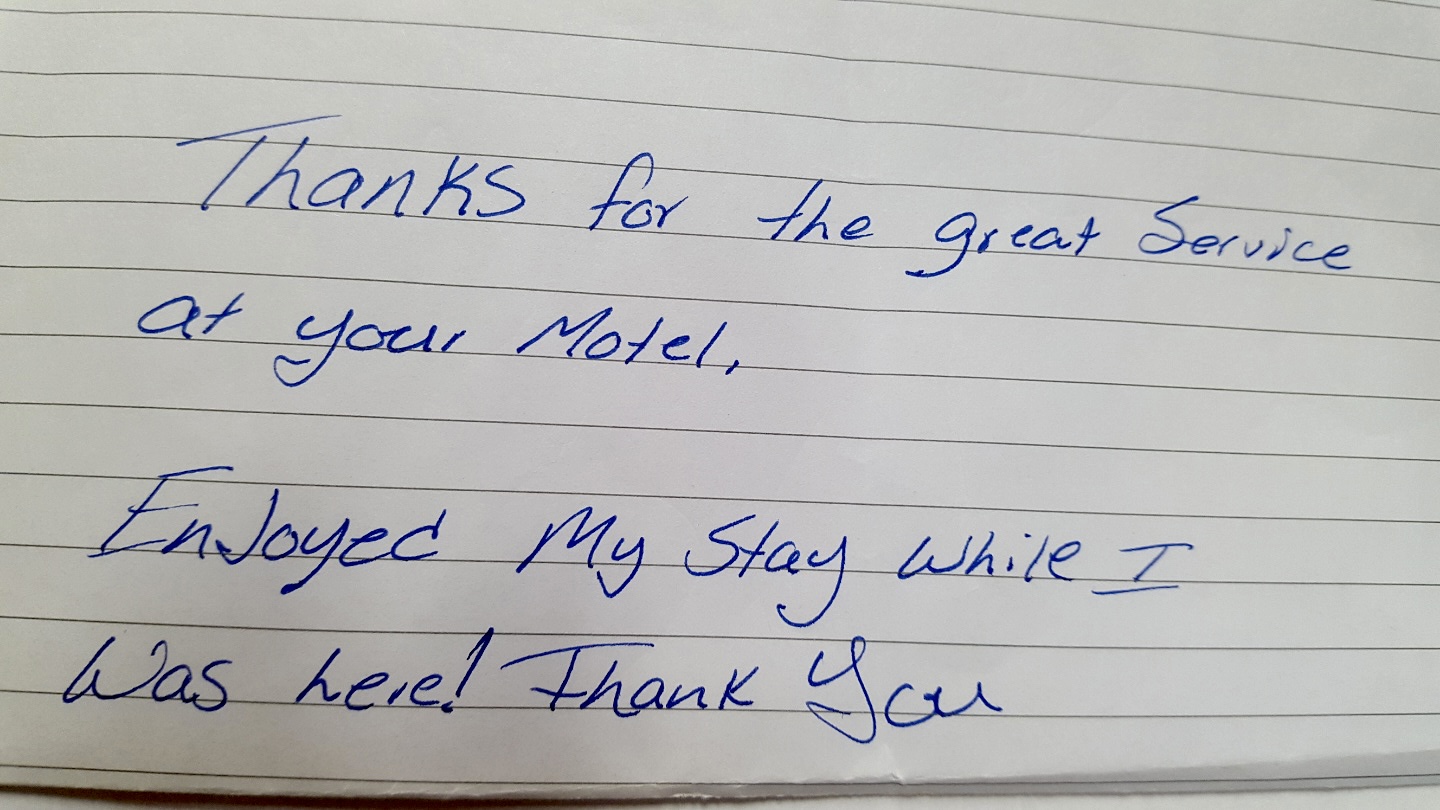 Thanks for the great Service
at your Motel.
Enjoyed My Stay while I
Was here! Thank You